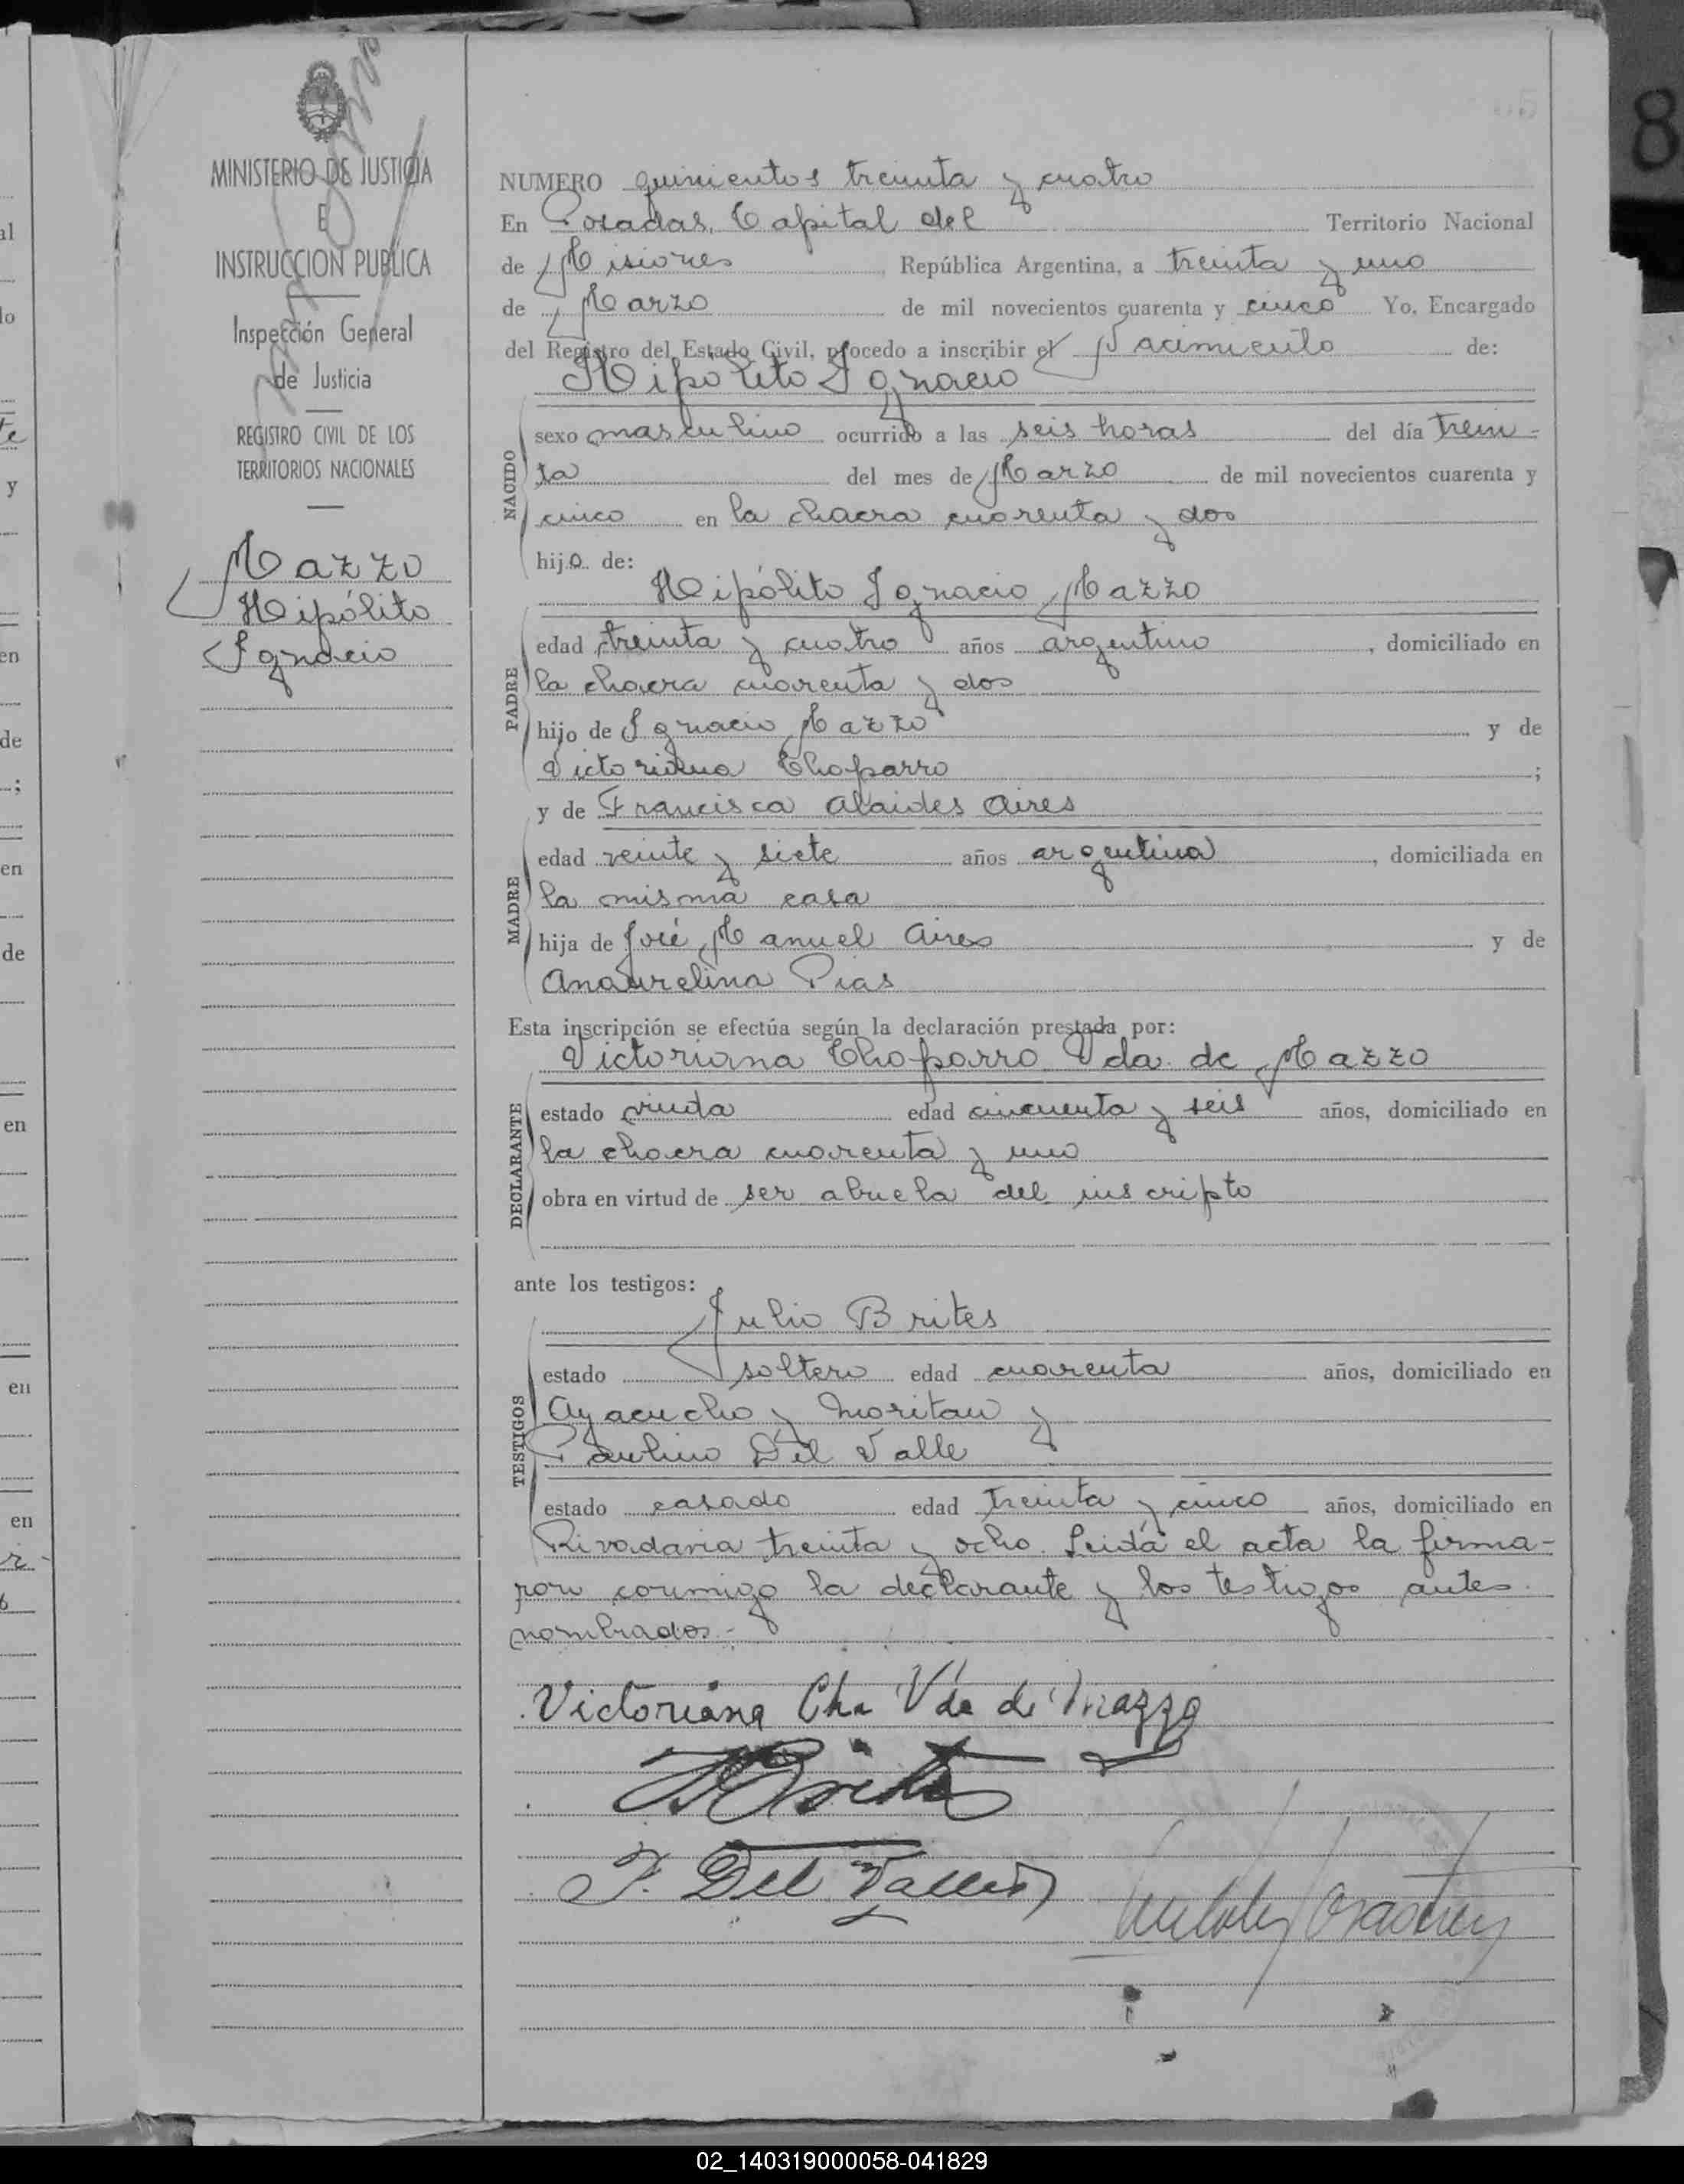 MINISTERIO DE JUSTICIA
E
INSTRUCCION PUBLICA
Inspección General
de Justicia
REGISTRO CIVIL DE LOS
TERRITORIOS NACIONALES
Mazzo
Hipólito
Ignacio
NUMERO quinientos treinta y cuatro
En Posadas, Capital del Territorio Nacional
de Misiones, República Argentina, a treinta y uno
de Marzo de mil novecientos cuarenta y cinco Yo, Encargado
del Registro del Estado Civil, procedo a inscribir el Nacimiento de:
Hipolito Ignacio
NACIDO
sexo masculino ocurrido a las seis horas del día trein-
ta del mes de Marzo de mil novecientos cuarenta y
cinco en la chacra cuarenta y dos
hijo de:
Hipólito Ignacio Mazzo
PADRE
edad treinta y cuatro años argentino, domiciliado en
la chacra cuarenta y dos
hijo de Ignacio Mazzo y de
Victoriana Chaparro;
y de Francisca Alaides Aires
MADRE
edad veinte y siete años argentina, domiciliada en
la misma casa
hija de José Manuel Aires y de
Anaurelina Pias
Esta inscripción se efectúa según la declaración prestada por:
Victoriana Chaparro Vda. de Mazzo
DECLARANTE
estado viuda edad cincuenta y seis años, domiciliado en
la chacra cuarenta y uno
obra en virtud de ser abuela del inscripto
ante los testigos:
Julio Brites
TESTIGOS
estado soltero edad cuarenta años, domiciliado en
Ayacucho y Moritan y
Paulino Del Valle
estado casado edad treinta y cinco años, domiciliado en
Rivadavia treinta y ocho. Leida el acta la firma-
ron conmigo la declarante y los testigos antes
nombrados.-
Victoriana Cha Vda de Mazzo
JBrites
P. Del Valle
8
al
lo
te
y
en
de
;
en
de
en
en
en
02_140319000058-041829